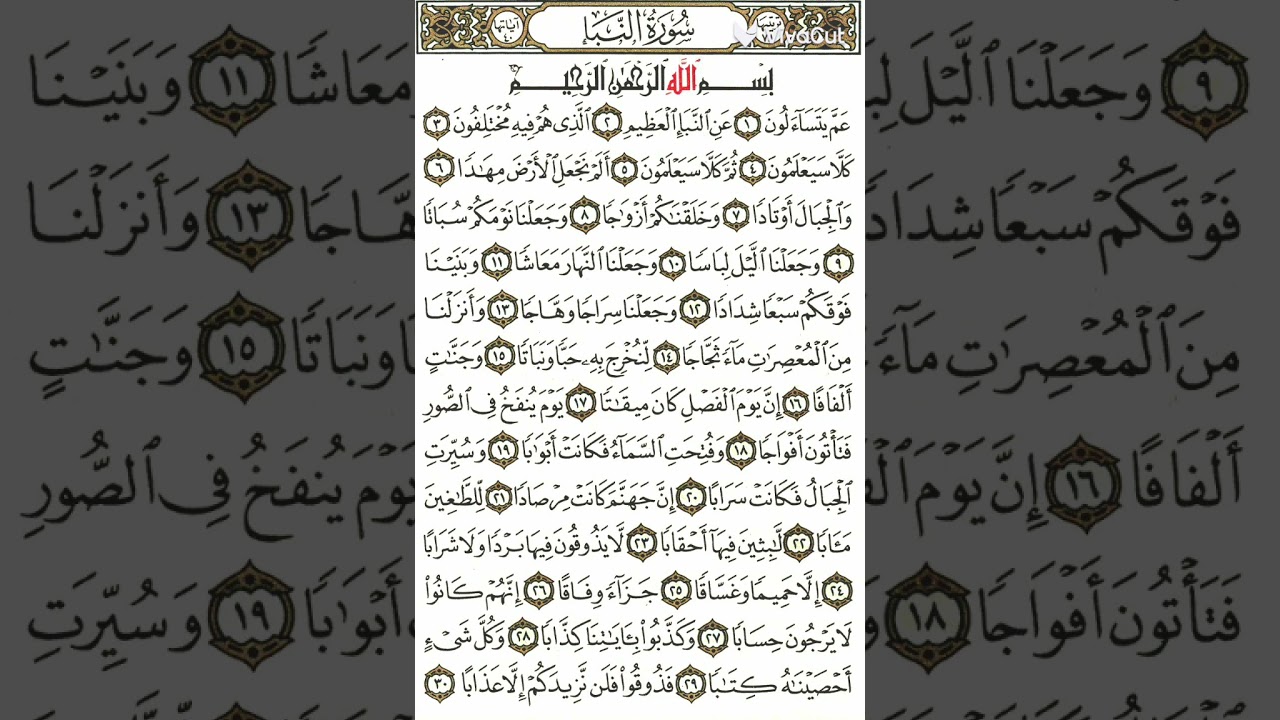 سُورَةُ النَّبَإِ
آياتها ٤٠
WiyaCut
بِسْمِ ٱللَّهِ ٱلرَّحْمَٰنِ ٱلرَّحِيمِ
عَمَّ يَتَسَآءَلُونَ ١ عَنِ ٱلنَّبَإِ ٱلْعَظِيمِ ٢ ٱلَّذِى هُمْ فِيهِ مُخْتَلِفُونَ ٣
كَلَّا سَيَعْلَمُونَ ٤ ثُمَّ كَلَّا سَيَعْلَمُونَ ٥ أَلَمْ نَجْعَلِ ٱلْأَرْضَ مِهَٰدًا ٦
وَٱلْجِبَالَ أَوْتَادًا ٧ وَخَلَقْنَٰكُمْ أَزْوَٰجًا ٨ وَجَعَلْنَا نَوْمَكُمْ سُبَاتًا
٩ وَجَعَلْنَا ٱلَّيْلَ لِبَاسًا ١٠ وَجَعَلْنَا ٱلنَّهَارَ مَعَاشًا ١١ وَبَنَيْنَا
فَوْقَكُمْ سَبْعًا شِدَادًا ١٢ وَجَعَلْنَا سِرَاجًا وَهَّاجًا ١٣ وَأَنزَلْنَا
مِنَ ٱلْمُعْصِرَٰتِ مَآءً ثَجَّاجًا ١٤ لِّنُخْرِجَ بِهِۦ حَبًّا وَنَبَاتًا ١٥ وَجَنَّٰتٍ
أَلْفَافًا ١٦ إِنَّ يَوْمَ ٱلْفَصْلِ كَانَ مِيقَٰتًا ١٧ يَوْمَ يُنفَخُ فِى ٱلصُّورِ
فَتَأْتُونَ أَفْوَاجًا ١٨ وَفُتِحَتِ ٱلسَّمَآءُ فَكَانَتْ أَبْوَٰبًا ١٩ وَسُيِّرَتِ
ٱلْجِبَالُ فَكَانَتْ سَرَابًا ٢٠ إِنَّ جَهَنَّمَ كَانَتْ مِرْصَادًا ٢١ لِّلطَّٰغِينَ
مَـَٔابًا ٢٢ لَّٰبِثِينَ فِيهَآ أَحْقَابًا ٢٣ لَّا يَذُوقُونَ فِيهَا بَرْدًا وَلَا شَرَابًا
٢٤ إِلَّا حَمِيمًا وَغَسَّاقًا ٢٥ جَزَآءً وِفَاقًا ٢٦ إِنَّهُمْ كَانُوا۟
لَا يَرْجُونَ حِسَابًا ٢٧ وَكَذَّبُوا۟ بِـَٔايَٰتِنَا كِذَّابًا ٢٨ وَكُلَّ شَىْءٍ
أَحْصَيْنَٰهُ كِتَٰبًا ٢٩ فَذُوقُوا۟ فَلَن نَّزِيدَكُمْ إِلَّا عَذَابًا ٣٠